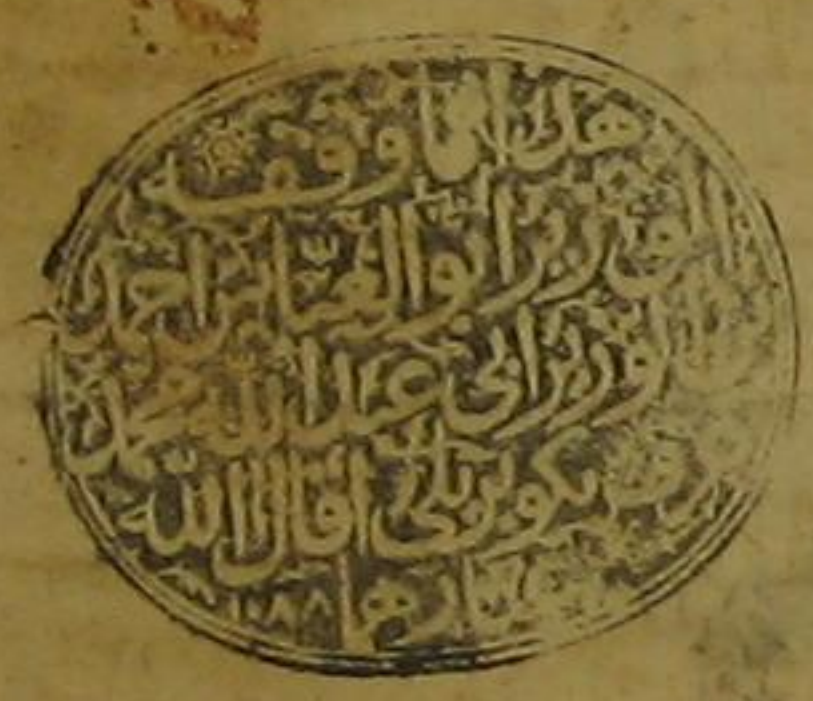 هذا مما وقفه
الوزير ابو العباس احمد
الوزير ابي عبد الله محمد
عرف بكوبريلي اقال الله
عثارهما ١٠٨٨